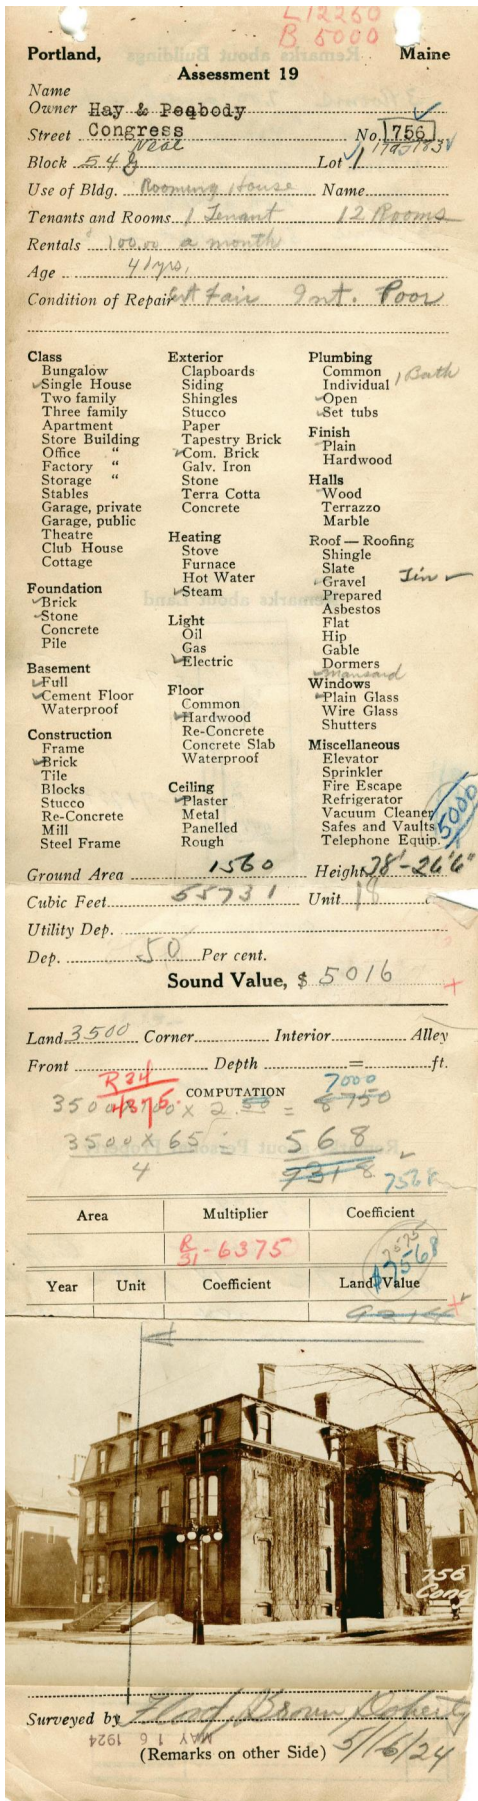 L 12260
B 5000
Portland, Maine
Assessment 19
Name
Owner Hay & Peabody
Street Congress No. 756
Neal
Block 54 g Lot 1
Use of Bldg. Rooming House Name
Tenants and Rooms 1 Tenant 12 Rooms
Rentals $100.00 a month
Age 41 yrs.
Condition of Repair Ext Fair Int. Poor
Class
Bungalow
✓Single House
Two family
Three family
Apartment
Store Building
Office "
Factory "
Storage "
Stables
Garage, private
Garage, public
Theatre
Club House
Cottage
Foundation
✓Brick
✓Stone
Concrete
Pile
Basement
✓Full
✓Cement Floor
Waterproof
Construction
Frame
✓Brick
Tile
Blocks
Stucco
Re-Concrete
Mill
Steel Frame
Exterior
Clapboards
Siding
Shingles
Stucco
Paper
Tapestry Brick
✓Com. Brick
Galv. Iron
Stone
Terra Cotta
Concrete
Heating
Stove
Furnace
Hot Water
✓Steam
Light
Oil
Gas
✓Electric
Floor
Common
✓Hardwood
Re-Concrete
Concrete Slab
Waterproof
Ceiling
✓Plaster
Metal
Panelled
Rough
Plumbing
Common
Individual 1 Bath
✓Open
✓Set tubs
Finish
✓Plain
Hardwood
Halls
✓Wood
Terrazzo
Marble
Roof — Roofing
Shingle
Slate
✓Gravel Tin ✓
Prepared
Asbestos
Flat
Hip
Gable
Dormers
Mansard
Windows
✓Plain Glass
Wire Glass
Shutters
Miscellaneous
Elevator
Sprinkler
Fire Escape
Refrigerator
Vacuum Cleaner
Safes and Vaults
Telephone Equip.
5000
Ground Area 1560 Height 38'-26'6"
Cubic Feet 55731 Unit 18
Utility Dep.
Dep. 50 Per cent.
Sound Value, $ 5016
Land 3500 Corner Interior Alley
Front Depth = ft.
R 34
4375
COMPUTATION
7000
3500 x 100 x 2.50 = 8750
3500 x 65 = 568
4
9318 7568
Area Multiplier Coefficient
R/31 - 6375
7575
$7568
Year Unit Coefficient Land Value
9214
756
Cong
Surveyed by Floyd, Brown, Doherty
MAY 16 1924
(Remarks on other Side) 5/16/24